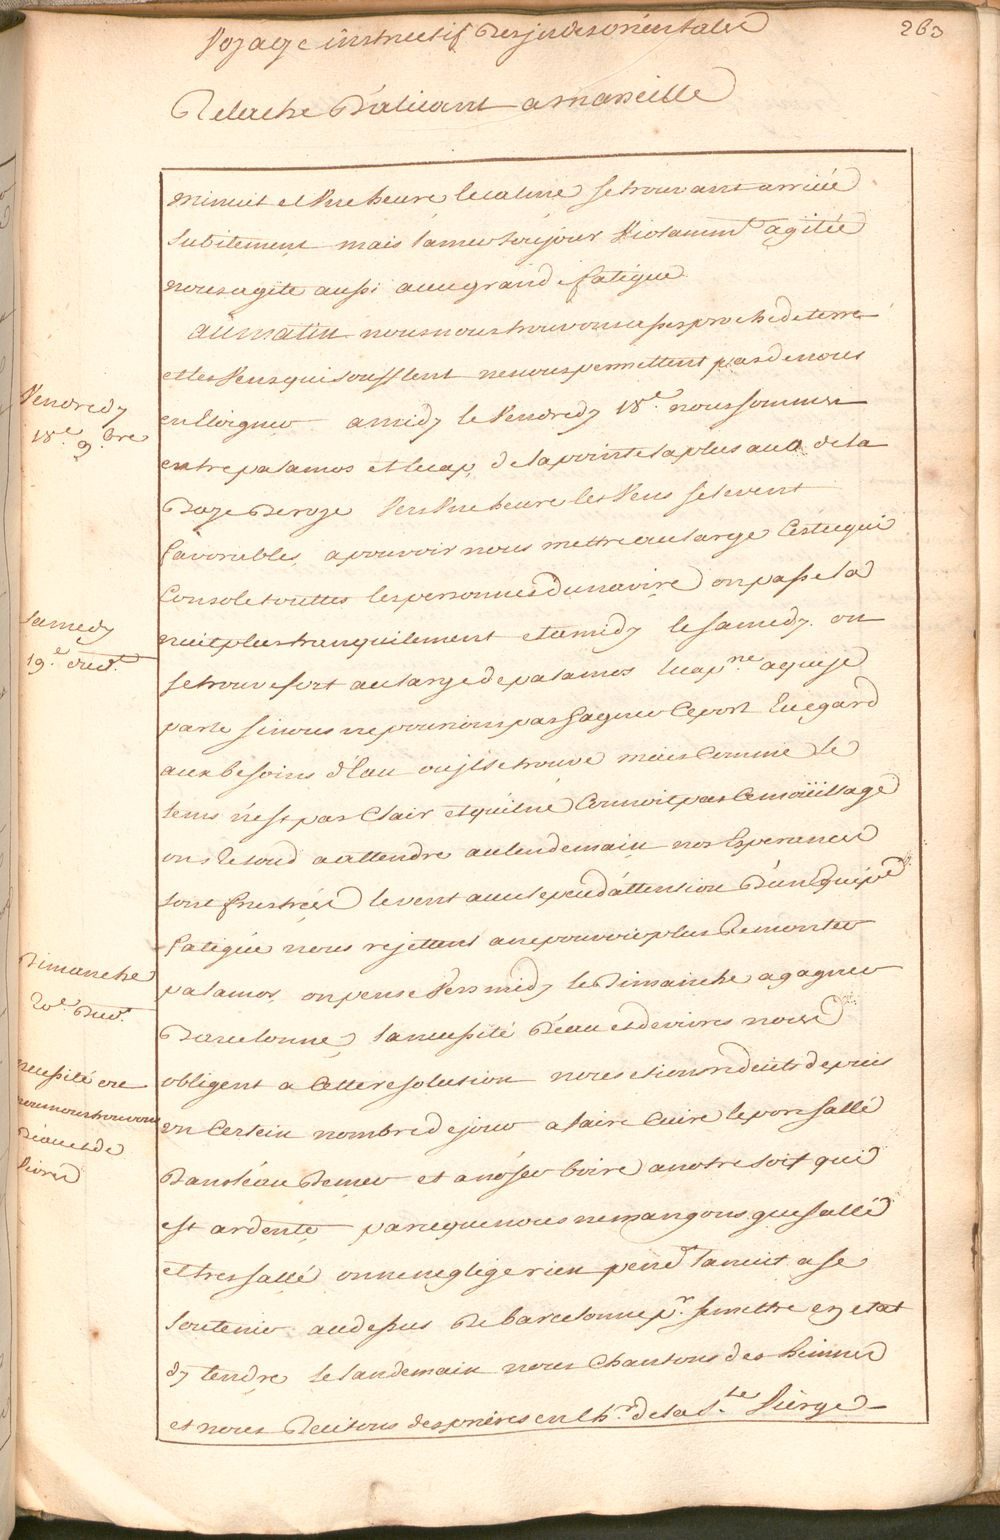 Voyage instructif Des jndes orientales
263
Relache D'alicant a marseille
minuit et Vne heure le calme se trouvant arrivée
subitement mais la mer toujour Violamm.t agitée
nous agite aussi avec grande fatigue
au matin nous nous trouvons asses proche de terre
et les Vens qui soufflent ne nous permettent pas de nous
en Eloigner a midy le Vendredy 18.e nous sommes
Vendredy
18.e 9.bre
entre palamos et le cap de la pointe la plus au de la
Baye De roze Vers Vne heure les Vens se levent
favorables a pouvoir nous mettre au large C'est ce qui
Console touttes les personnes du navire on passe la
nuit plus tranquilement et a midy le samedy on
samedy
19.e dud.t
se trouve fort au large de palamos le cap.ne a qui je
parle si nous ne pourions pas gagner ce port Eu egard
aux besoins d'Eau ou jl se trouve mais Comme le
tems n'est pas Clair et qu'il ne Connoit pas le mouillage
on resoud a attendre au lendemain nos Esperances
sont frustrées le vent avec le peu d'attention D'un Equipe
fatigué nous rejettent a ne pouvoir plus Remonter
palamos on pense Vers midy le Dimanche a gagner
Dimanche
20.e Dud.t
Barcelonne, la necessité D'eau et de vivres nous
obligent a Cette resolution nous etions reduits depuis
necessité ou
nous nous trouvons
D'eau et de
Vivres
un Certain nombre de jour a faire Cuire le porc sallé
Dans l'eau De mer et a n'oser boire a notre soif qui
est ardente parceque nous ne mangons que sallé
et tres sallé on ne neglige rien pend.t la nuit a se
soutenir au dessus De barcelonne p.r se mettre en etat
d'y tendre le landemain nous Chantons des himnes
et nous Recitons des prieres en lh.r de la S.te Vierge